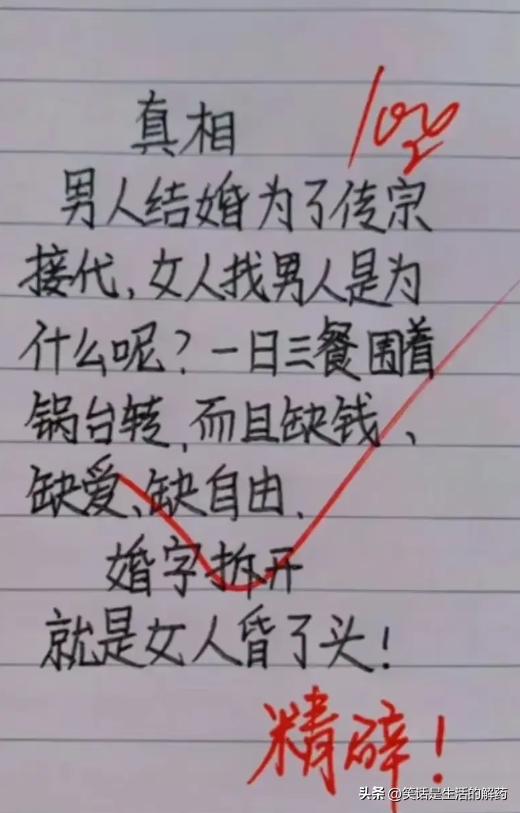 真相
100
男人结婚为了传宗
接代，女人找男人是为
什么呢？一日三餐围着
锅台转，而且缺钱、
缺爱、缺自由．
婚字拆开
就是女人昏了头！
精辟！
头条 @笑话是生活的解药